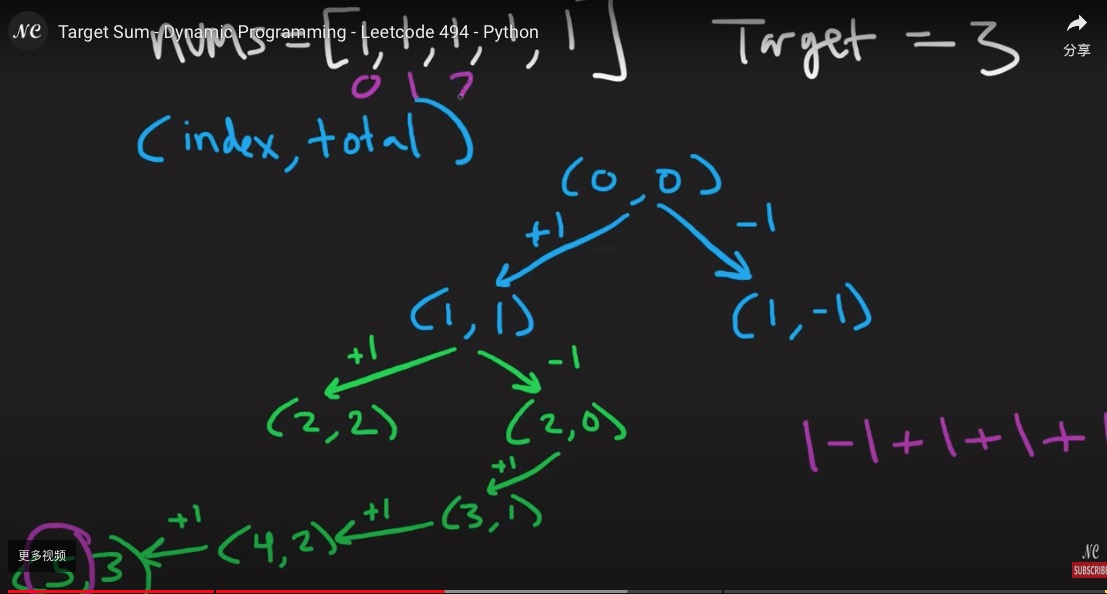 NC Target Sum - Dynamic Programming - Leetcode 494 - Python
分享
nums = [1, 1, 1, 1, 1] Target = 3
0 1 2
(index, total)
(0, 0)
+1 -1
(1, 1) (1, -1)
+1 -1
(2, 2) (2, 0)
1-1+1+1+1
+1
(3, 1)
+1 +1
(5, 3) (4, 2)
更多视频
NC
SUBSCRIBE